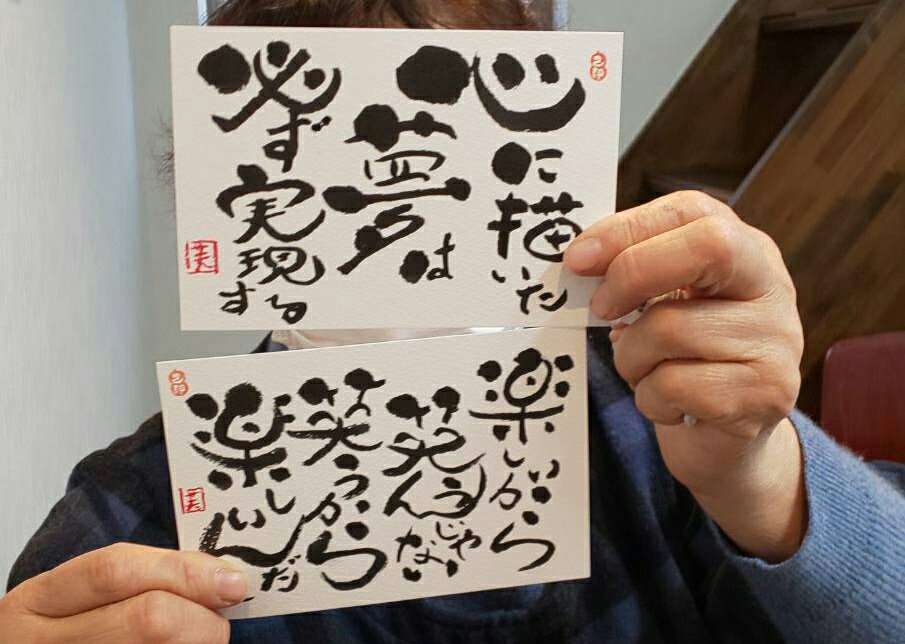 心に描いた
夢は
必ず実現する
楽しいから
笑うんじゃない
笑うから
楽しいんだ